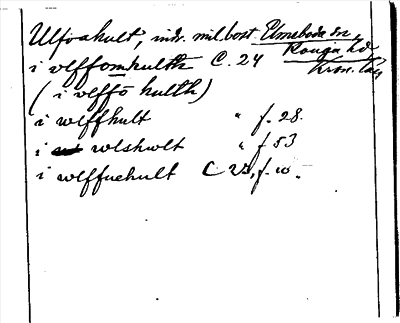 Ulfvahult, indr. mil. bost. Elmeboda sn,
Konga hd
Kron. län
i vlffomhulth C. 24
(i vlffo hulth)
i wlffhult " f. 28.
i wlshwlt " f 53
i wlffuehult C 25, f. 10.